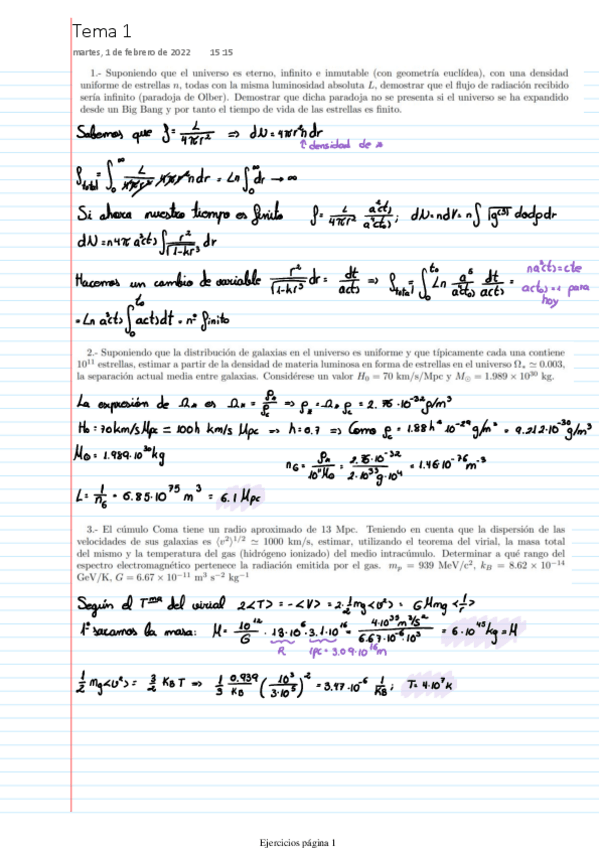 Tema 1
martes, 1 de febrero de 2022 15:15
1.- Suponiendo que el universo es eterno, infinito e inmutable (con geometría euclídea), con una densidad
uniforme de estrellas n, todas con la misma luminosidad absoluta L, demostrar que el flujo de radiación recibido
sería infinito (paradoja de Olber). Demostrar que dicha paradoja no se presenta si el universo se ha expandido
desde un Big Bang y por tanto el tiempo de vida de las estrellas es finito.
Sabemos que f = L/4πr² ⇒ dN = 4πr²n dr
↑ densidad de
f_total = ∫₀^∞ L/4πr² 4πr² n dr = Ln ∫₀^∞ dr → ∞
Si ahora nuestro tiempo es finito f = L/4πr² a²(t)/a²(t₀) ; dN = ndV = n ∫ √g⁽³⁾ dθdφdr
dN = n4π a³(t) ∫ r²/√1-kr² dr
Hacemos un cambio de variable dr = dt/a(t) ⇒ f_total = ∫₀^t₀ Ln dt/a(t) =
na³(t) = cte
a(t₀) = 1 para
hoy
= Ln a³(t) ∫₀^t₀ a(t)dt = nº finito
2.- Suponiendo que la distribución de galaxias en el universo es uniforme y que típicamente cada una contiene
10¹¹ estrellas, estimar a partir de la densidad de materia luminosa en forma de estrellas en el universo Ω⋆ ≃ 0.003,
la separación actual media entre galaxias. Considérese un valor H₀ = 70 km/s/Mpc y M⊙ = 1.989 × 10³⁰ kg.
La expresión de Ω⋆ es Ω⋆ = ρ⋆/ρc ⇒ ρ⋆ = Ω⋆ ρc = 2.76·10⁻³² g/m³
H₀ = 70 km/s/Mpc = 100h km/s Mpc ⇒ h = 0.7 ⇒ Como ρc = 1.88h² 10⁻²⁹ g/m³ = 9.212·10⁻³⁰ g/m³
M⊙ = 1.989·10³⁰ kg
n_G = ρ⋆/10¹¹M⊙ = = 1.46·10⁻⁷⁶ m⁻³
L = 1/n_G = 6.85·10⁷⁵ m³ = 6.1 Mpc
3.- El cúmulo Coma tiene un radio aproximado de 13 Mpc. Teniendo en cuenta que la dispersión de las
velocidades de sus galaxias es ⟨v²⟩¹/² ≃ 1000 km/s, estimar, utilizando el teorema del virial, la masa total
del mismo y la temperatura del gas (hidrógeno ionizado) del medio intracúmulo. Determinar a qué rango del
espectro electromagnético pertenece la radiación emitida por el gas. mₚ = 939 MeV/c², k_B = 8.62 × 10⁻¹⁴
GeV/K, G = 6.67 × 10⁻¹¹ m³ s⁻² kg⁻¹
Según el Tᵐᵃ del virial 2<T> = -<V> = 2·½ mg<v²> = GMmg <1/r>
1º sacamos la masa: M = 10¹²/G · 13·10⁶ · 3.1·10¹⁶ = = 6·10⁴⁵ kg = M
R 1pc = 3.09·10¹⁶ m
½ mg<v²> = 3/2 K_B T ⇒ 1/3 0.939/K_B (10³/3·10⁵)² = 3.47·10⁻⁶ 1/K_B ; T = 4·10⁷ K
Ejercicios página 1